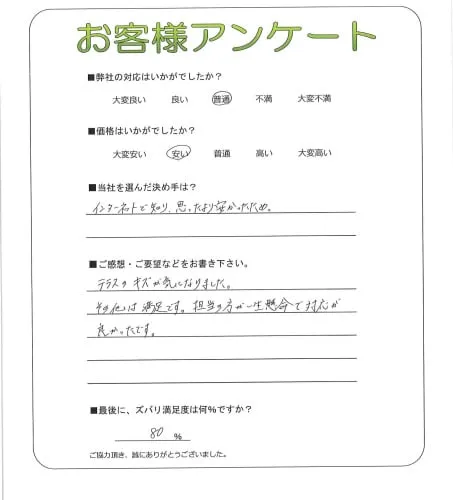 お客様アンケート
■弊社の対応はいかがでしたか？
大変良い 良い 普通 不満 大変不満
■価格はいかがでしたか？
大変安い 安い 普通 高い 大変高い
■当社を選んだ決め手は？
インターネットで知り、思ったより安かったため。
■ご感想・ご要望などをお書き下さい。
テラスのキズが気になりました。
その他は満足です。担当の方が一生懸命で対応が
良かったです。
■最後に、ズバリ満足度は何%ですか？
80 %
ご協力頂き、誠にありがとうございました。